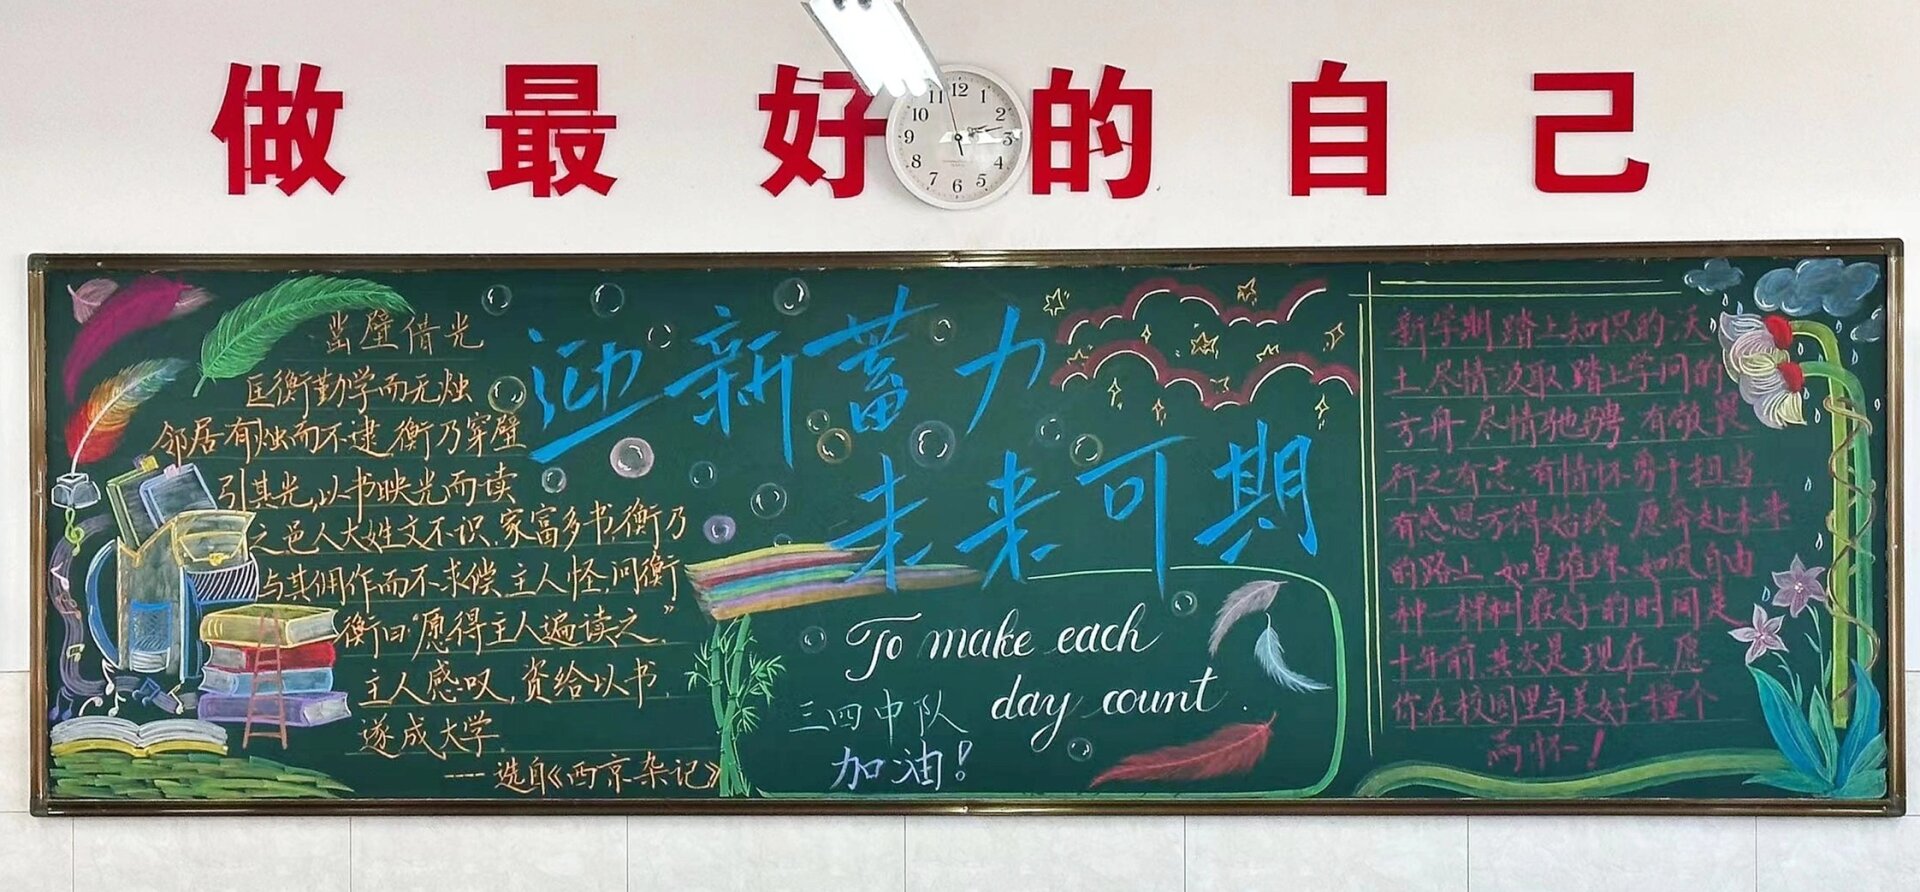 做最好的自己
11 12 1
10 2
9 3
8 4
7 6 5
凿壁借光
匡衡勤学而无烛
邻居有烛而不逮,衡乃穿壁
引其光,以书映光而读
之.邑人大姓文不识,家富多书,衡乃
与其佣作而不求偿.主人怪,问衡
衡曰:“愿得主人遍读之.”
主人感叹,资给以书,
遂成大学.
----选自《西京杂记》
迎新蓄力
未来可期
To make each
day count.
三四中队
加油!
新学期踏上知识的沃
土尽情汲取.踏上学问的
方舟 尽情驰骋.有敬畏
行之有志.有情怀勇于担当
有感恩方得始终 愿奔赴未来
的路上 如星璀璨 如风自由
种一棵树最好的时间是
十年前 其次是现在.愿
你在校园里与美好撞个
满怀!